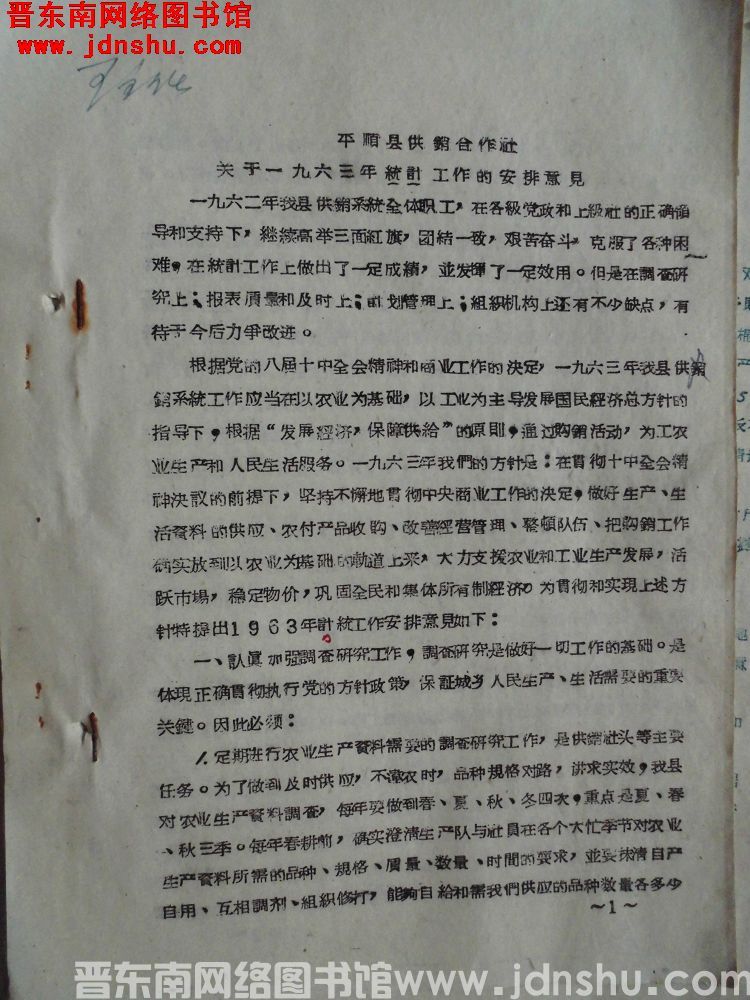 晋东南网络图书馆
www.jdnshu.com
平順县供銷合作社
关于一九六三年統計工作的安排意見
一九六二年我县供銷系統全体职工,在各級党政和上級社的正确領
导和支持下,継続高举三面紅旗,团結一致,艰苦奋斗,克服了各种困
难,在統計工作上做出了一定成績,並发揮了一定效用。但是在調查研
究上;报表质量和及时上;計划管理上;組織机构上还有不少缺点,有
待于今后力爭改进。
根据党的八届十中全会精神和商业工作的决定,一九六三年我县供銷
銷系統工作应当在以农业为基础,以工业为主导发展国民經济总方針的
指导下,根据“发展經济,保障供給”的原则,通过购銷活动,为工农
业生产和人民生活服务。一九六三年我們的方針是:在貫彻十中全会精
神决議的前提下,坚持不懈地貫彻中央商业工作的决定,做好生产、生
活資料的供应、农付产品收购、改善經营管理、整頓队伍、把购銷工作
确实放到以农业为基础的軌道上来,大力支援农业和工业生产发展,活
跃市場,稳定物价,巩固全民和集体所有制經济。为貫彻和实現上述方
針特提出1963年計統工作安排意見如下:
一、认真加强調查研究工作,調查研究是做好一切工作的基础。是
体現正确貫彻执行党的方針政策,保証城乡人民生产、生活需要的重要
关鍵。因此必須:
1.定期进行农业生产資料需要的調查研究工作,是供銷社头等主要
任务。为了做到及时供应,不違农时,品种規格对路,讲求实效,我县
对农业生产資料調查,每年要做到春、夏、秋、冬四次,重点是夏、春
、秋三季。每年春耕前,确实澄清生产队与社員在各个大忙季节对农业
生产資料所需的品种、規格、质量、数量、时間的要求,並要摸清自产
自用、互相調剂、組織修打,能夠自給和需我們供应的品种数量各多少
~1~
晋东南网络图书馆www.jdnshu.com